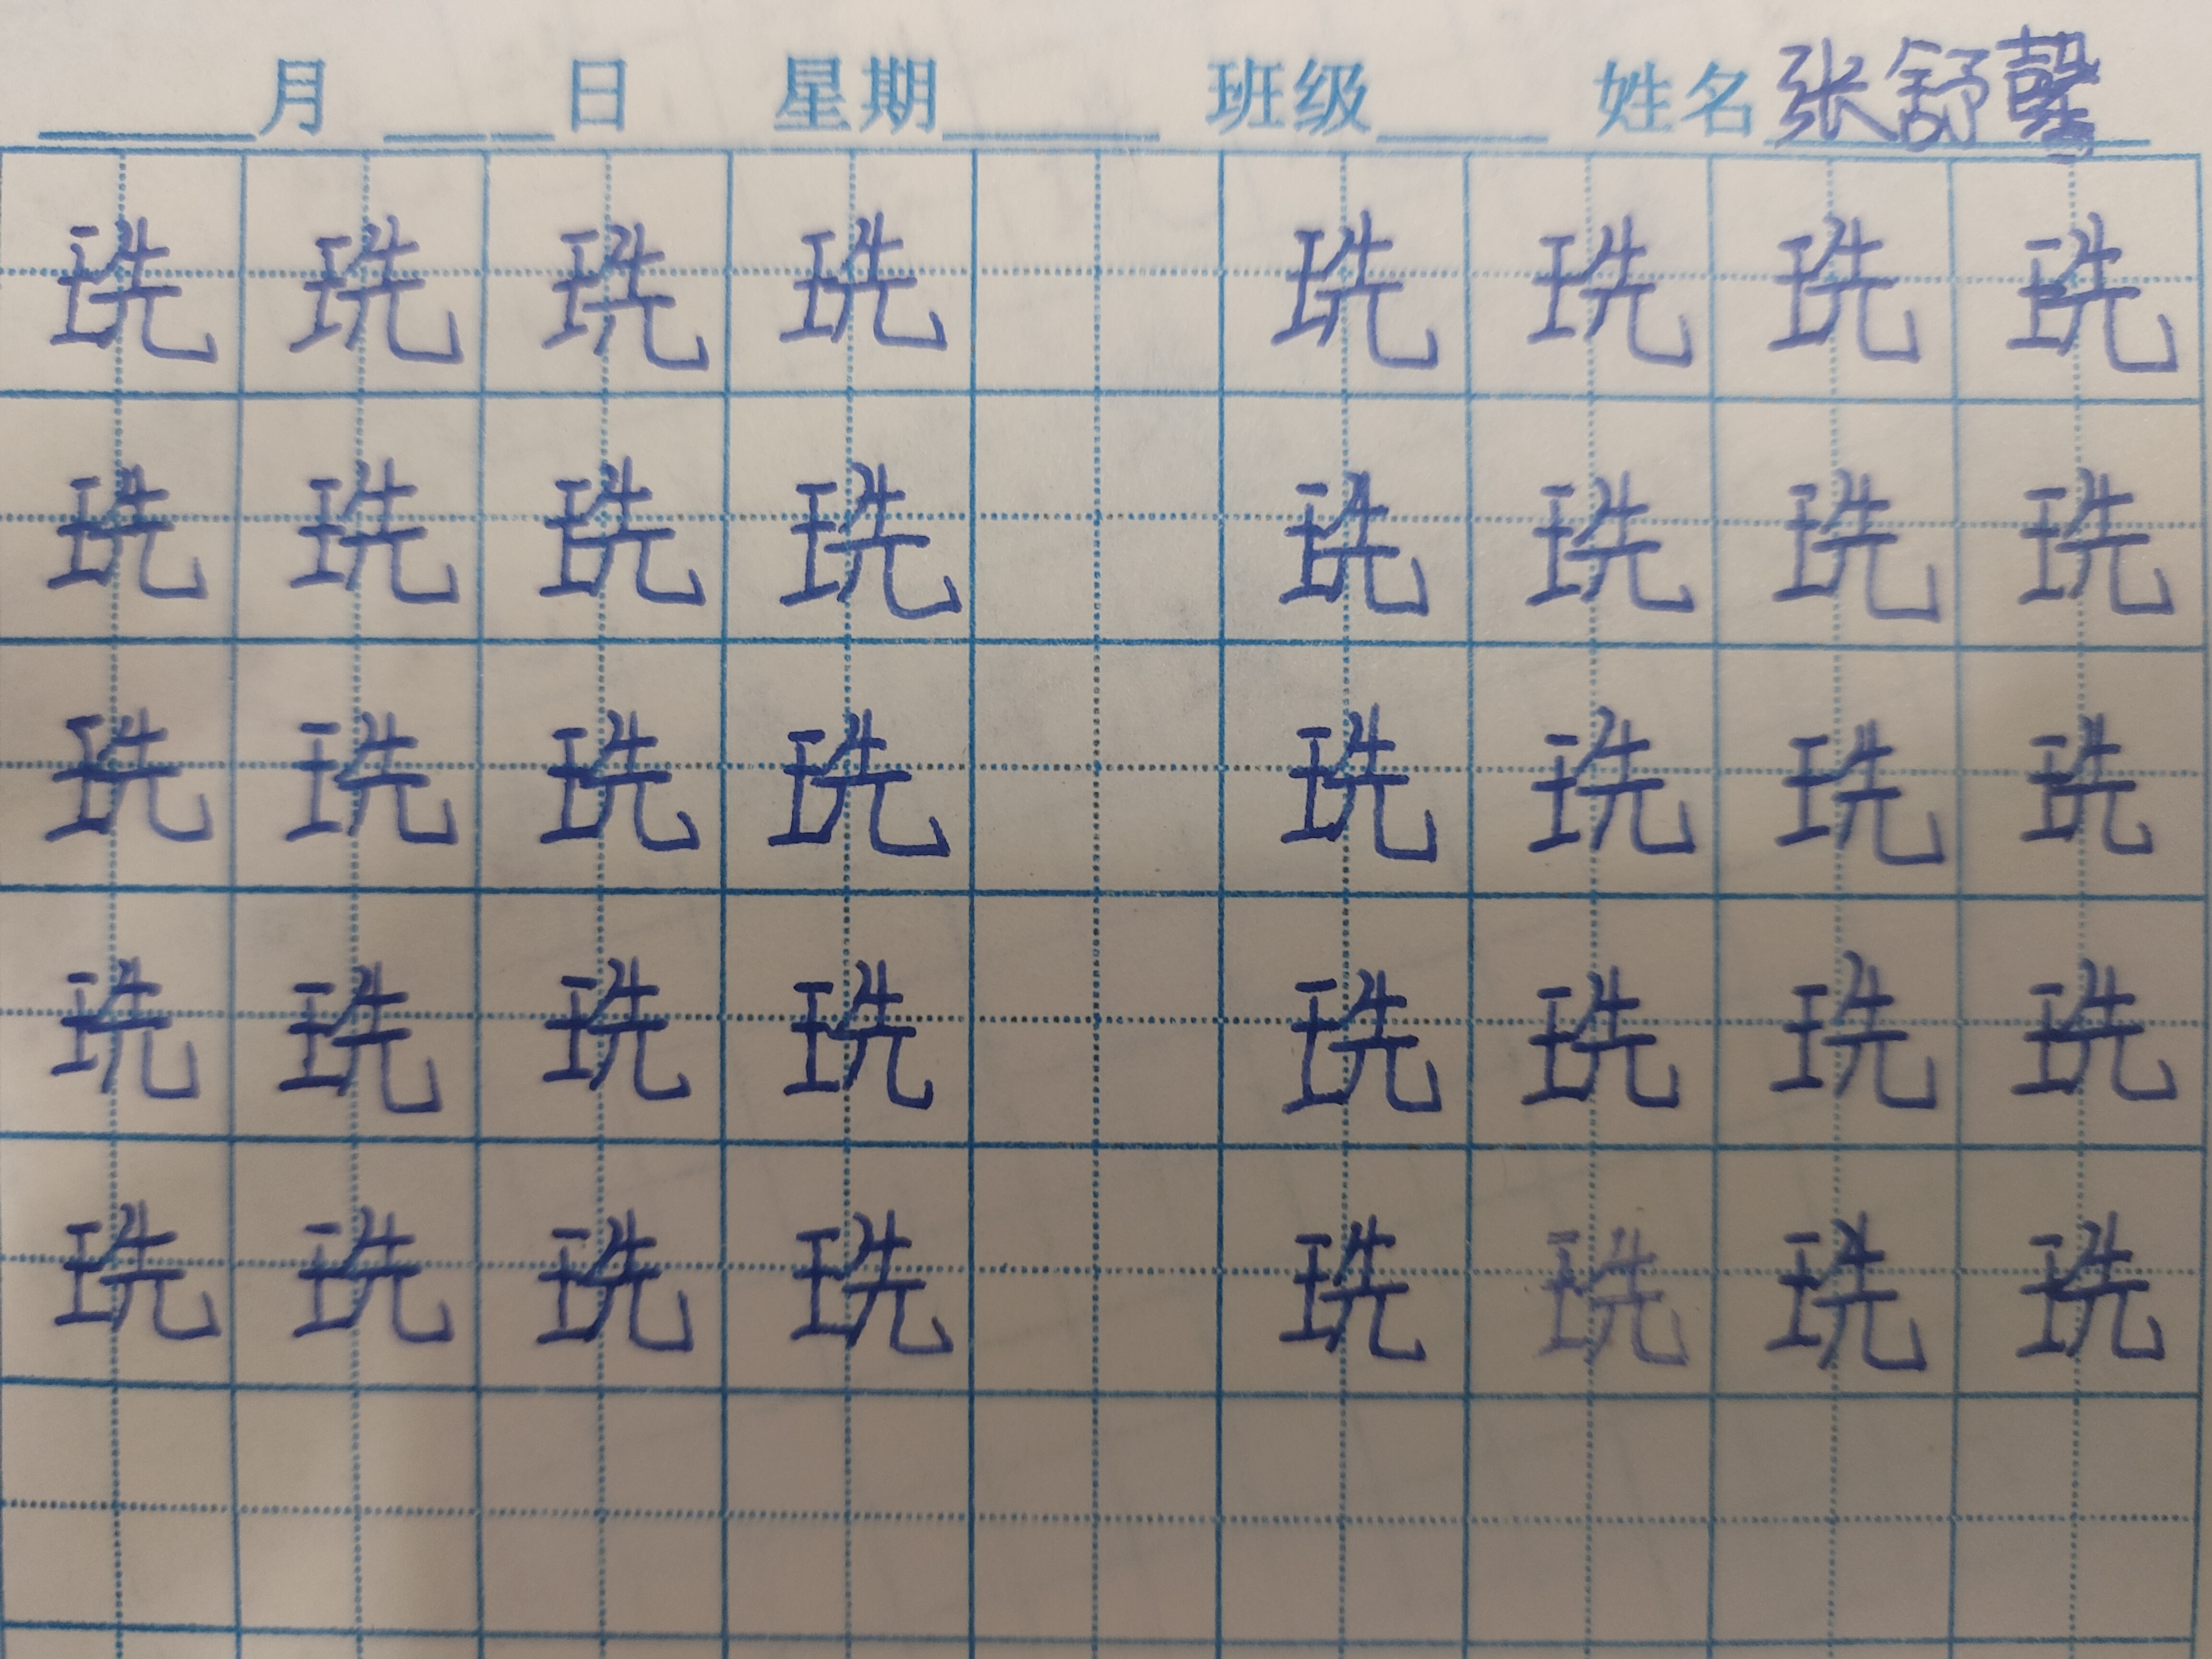 月 日 星期 班级 姓名 张舒馨
珗 珗 珗 珗 珗 珗 珗 珗
珗 珗 珗 珗 珗 珗 珗 珗
珗 珗 珗 珗 珗 珗 珗 珗
珗 珗 珗 珗 珗 珗 珗 珗
珗 珗 珗 珗 珗 珗 珗 珗